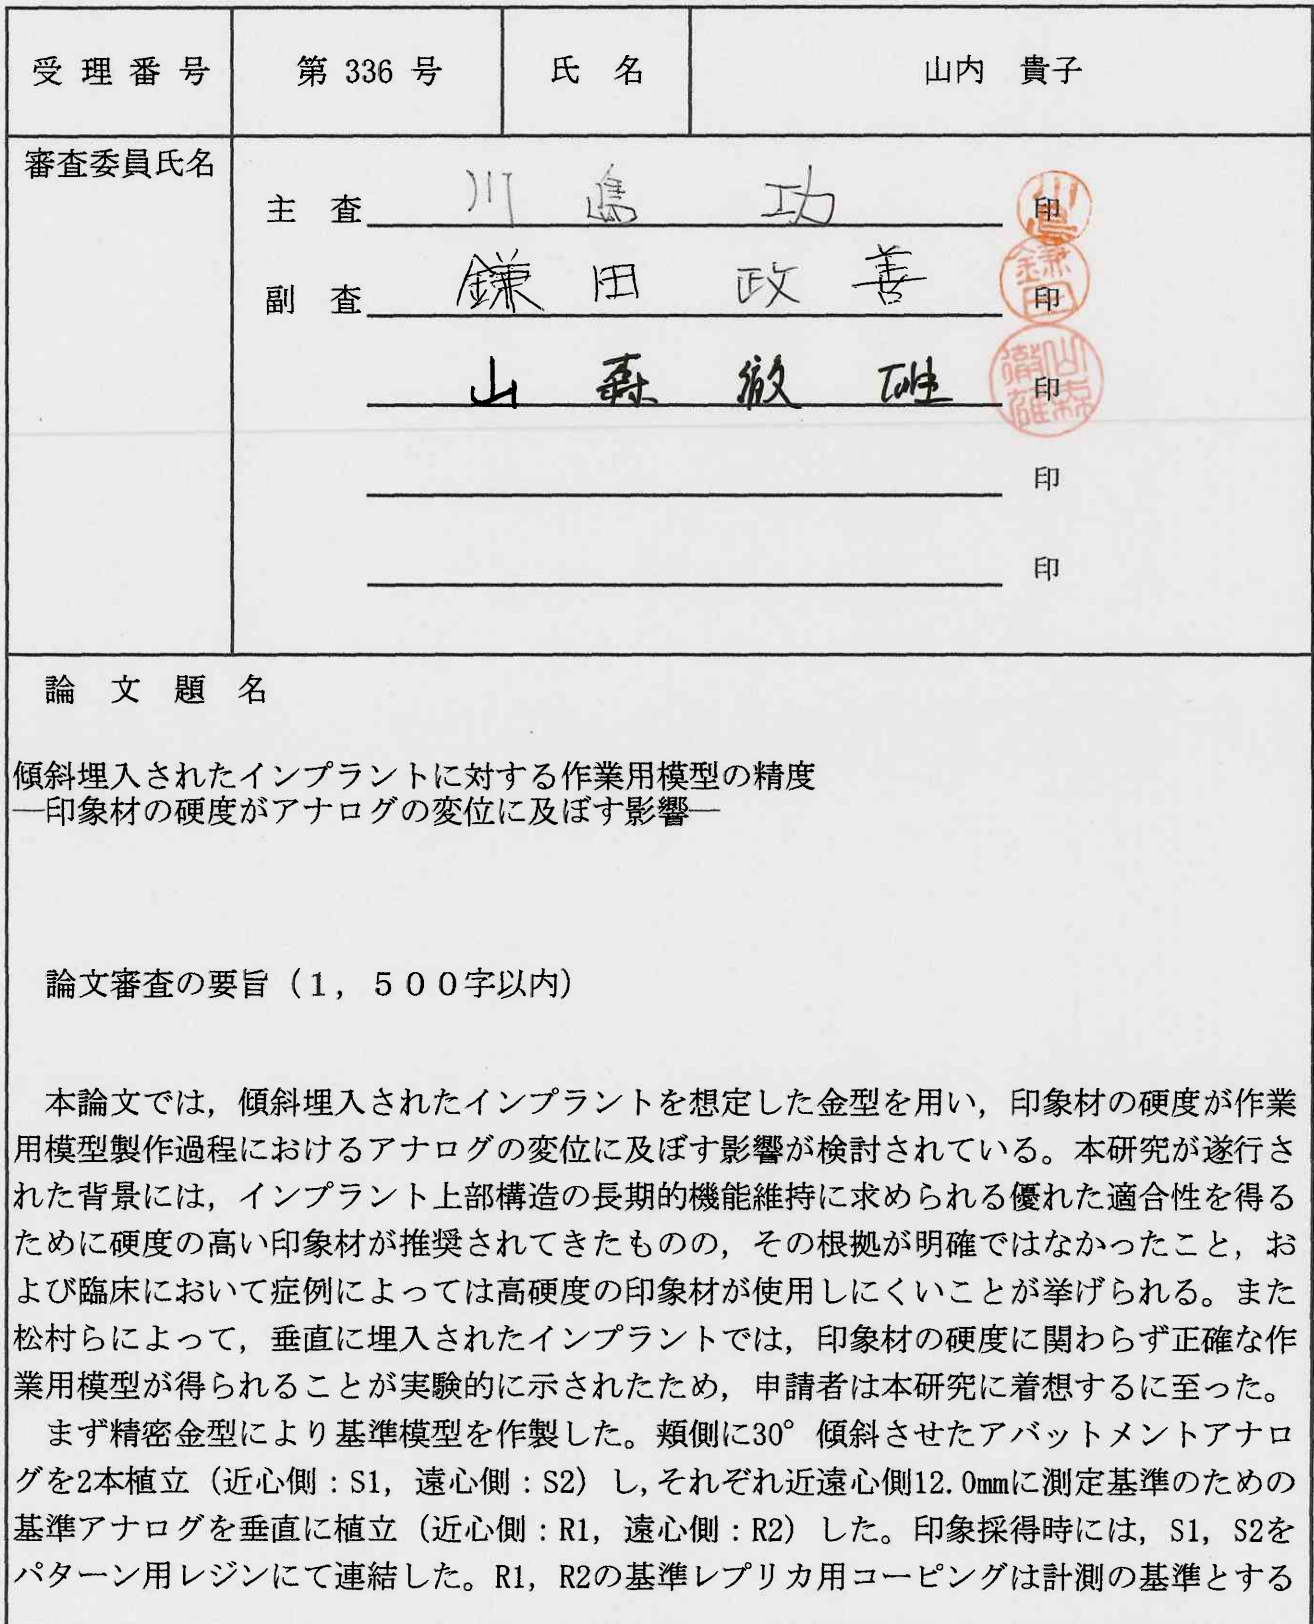 受理番号 第 336 号 氏 名 山内 貴子
審査委員氏名
主 査 川 嶌 功 印
副 査 鎌 田 政 善 印
山 森 徹 雄 印
印
印
論 文 題 名
傾斜埋入されたインプラントに対する作業用模型の精度
―印象材の硬度がアナログの変位に及ぼす影響―
論文審査の要旨（１，５００字以内）
本論文では，傾斜埋入されたインプラントを想定した金型を用い，印象材の硬度が作業
用模型製作過程におけるアナログの変位に及ぼす影響が検討されている。本研究が遂行さ
れた背景には，インプラント上部構造の長期的機能維持に求められる優れた適合性を得る
ために硬度の高い印象材が推奨されてきたものの，その根拠が明確ではなかったこと，お
よび臨床において症例によっては高硬度の印象材が使用しにくいことが挙げられる。また
松村らによって，垂直に埋入されたインプラントでは，印象材の硬度に関わらず正確な作
業用模型が得られることが実験的に示されたため，申請者は本研究に着想するに至った。
まず精密金型により基準模型を作製した。頬側に30°傾斜させたアバットメントアナロ
グを2本植立（近心側：S1，遠心側：S2）し,それぞれ近遠心側12.0mmに測定基準のための
基準アナログを垂直に植立（近心側：R1，遠心側：R2）した。印象採得時には，S1，S2を
パターン用レジンにて連結した。R1，R2の基準レプリカ用コーピングは計測の基準とする